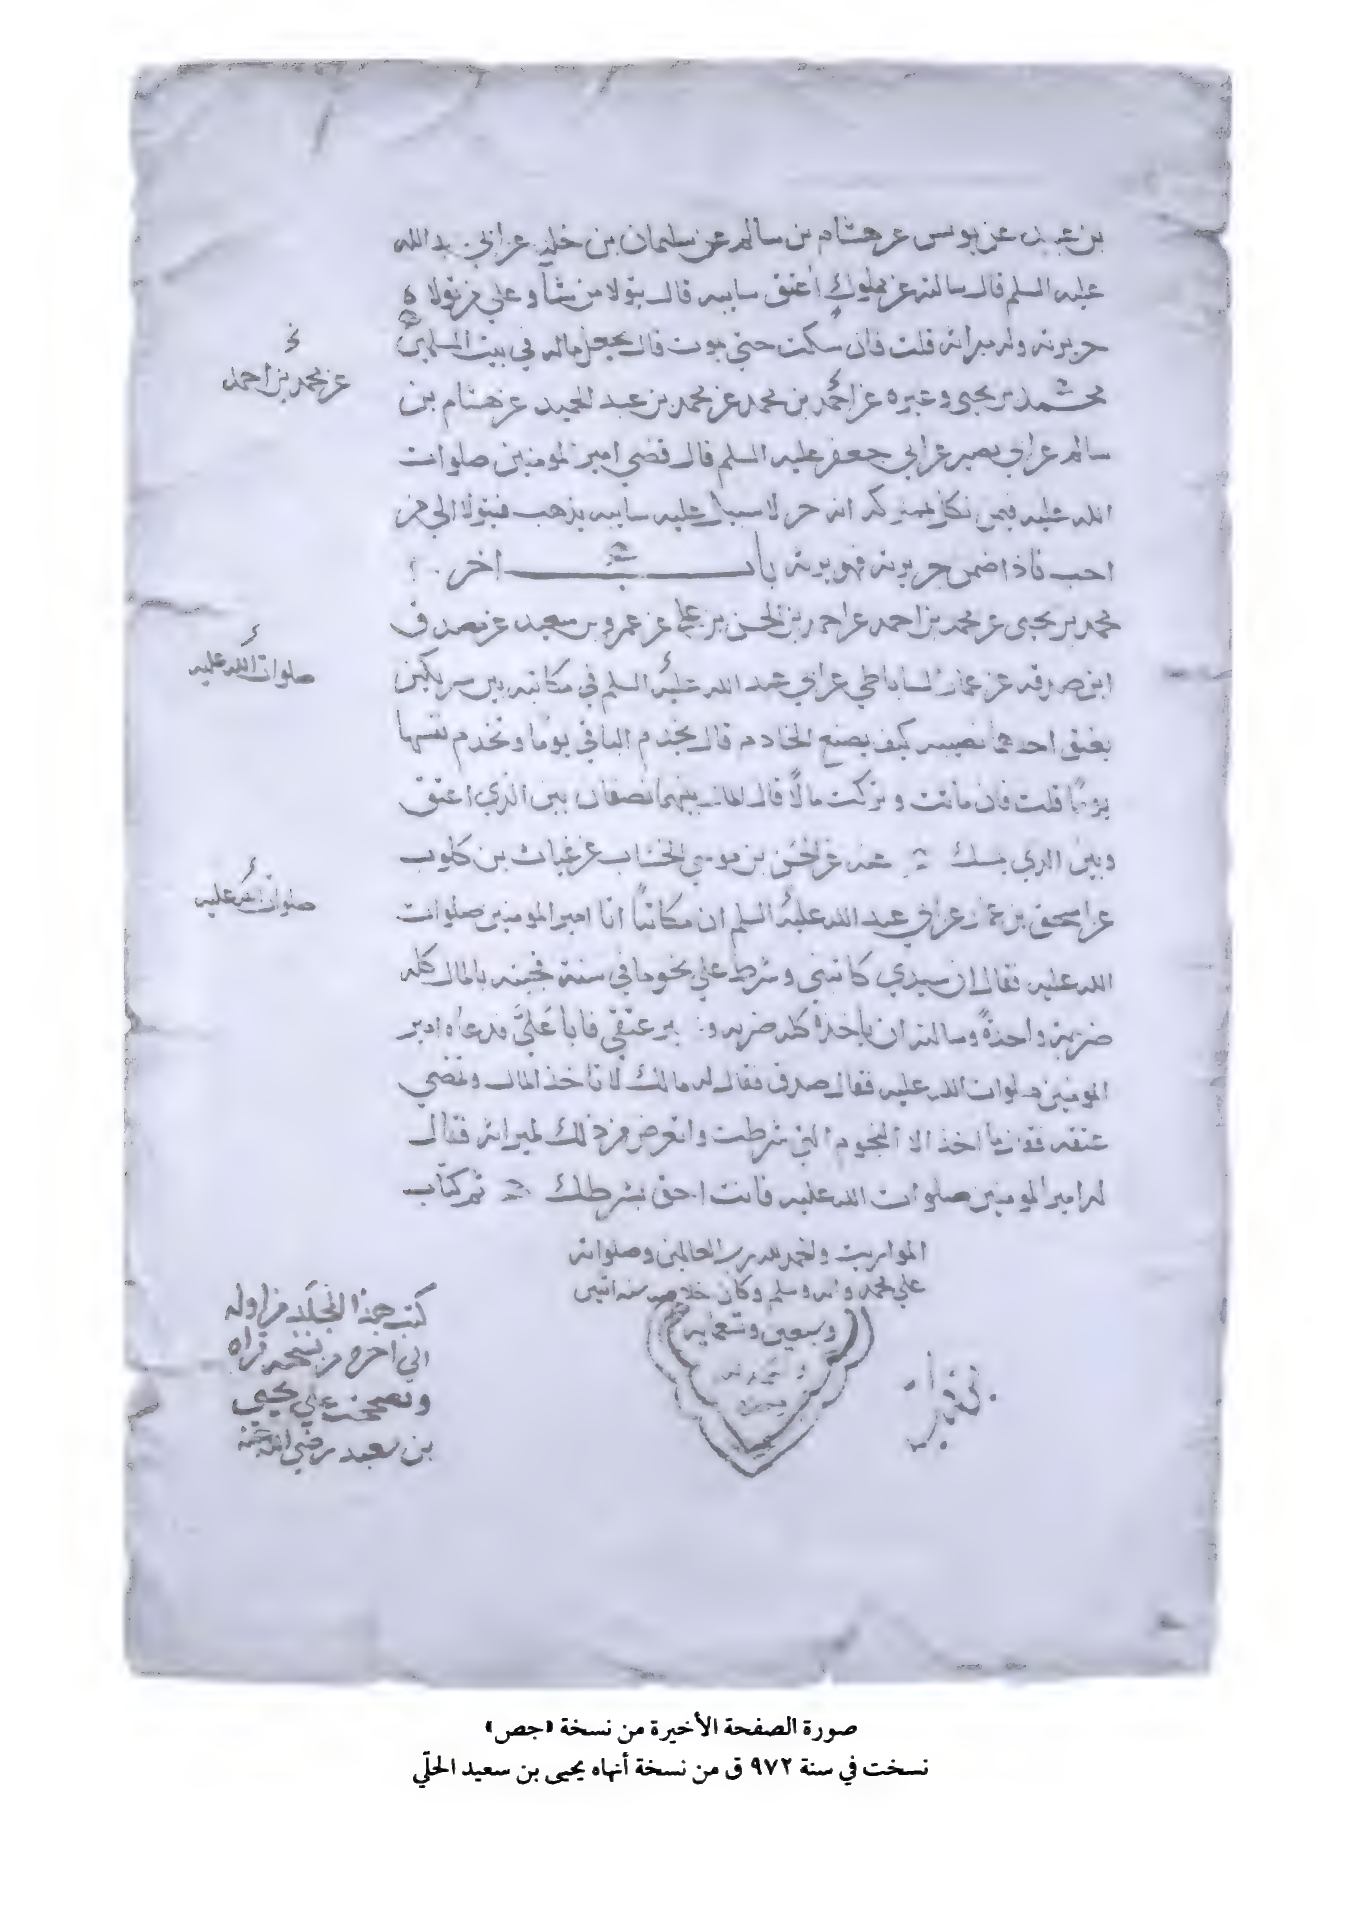 بن عن يونس عن هشام بن سالم عن سليمان بن خلد عن ابى عبدالله
عليه السلم قال سالته عن مملوك اعتق سايبه قال يتولا من شا وعلى من يتولاه
جريرته وله ميراثه قلت فان سكت حتى يموت قال يجعل ماله في بيت المسلمين
محمد بن يحيى وغيره عن احمد بن محمد عن محمد بن عبد الحميد عن هشام بن
عن محمد بن احمد
سالم عن ابي بصير عن ابي جعفر عليه السلم قال قضى امير المومنين صلوات
الله عليه فيمن نكل بمملوكه انه حر لا سبيل عليه سايبه يذهب فيتولا الى من
احب فاذا ضمن جريرته فهو يرثه باب اخر
محمد بن يحيى عن محمد بن احمد عن احمد بن الحسن بن علي عن عمرو بن سعيد عن مصدق
صلوات الله عليه
ابن صدقه عن عمار الساباطي عن ابي عبد الله عليه السلم في مكاتبه بين شريكين
يعتق احدهما نصيبه كيف يصنع الخادم قال يخدم الباقي يومًا وتخدم نفسها
يومًا قلت فان ماتت وتركت مالًا قال المال بينهما نصفان بين الذي اعتق
وبين الذي يمسك عنه عن الحسن بن موسى الخشاب عن غياث بن كلوب
صلوات الله عليه
عن اسحق بن عمار عن ابي عبد الله عليه السلم ان مكاتبًا اتا امير المومنين صلوات
الله عليه فقال ان سيدي كاتبني وشرط علي نجوما في سنة فجيته بالمال كله
ضربة واحدةً وسالته ان ياخذه كله ضربه عتقي فابا عَليَّ فدعاه امير
المومنين صلوات الله عليه فقال صدق فقال له مالك لا تاخذ المال وتمضي
عتقه فقال ما اخذ الا النجوم التي شرطت واتعرض من ذلك لميراثه فقال
له امير المومنين صلوات الله عليه فانت احق بشرطك تم كتاب
المواريث والحمد لله رب العالمين وصلواته
على محمد واله وسلم وكان خلاصه سنه اثنين
وسبعين وتسعمايه
كتب هذا المجلد من اوله
الى اخره من نسخه قراه
وتصححت على يحيى
بن سعيد رضي الله عنه
صورة الصفحة الأخيرة من نسخة «جص»
نسخت في سنة ٩٧٢ ق من نسخة أنهاه يحيى بن سعيد الحلّي